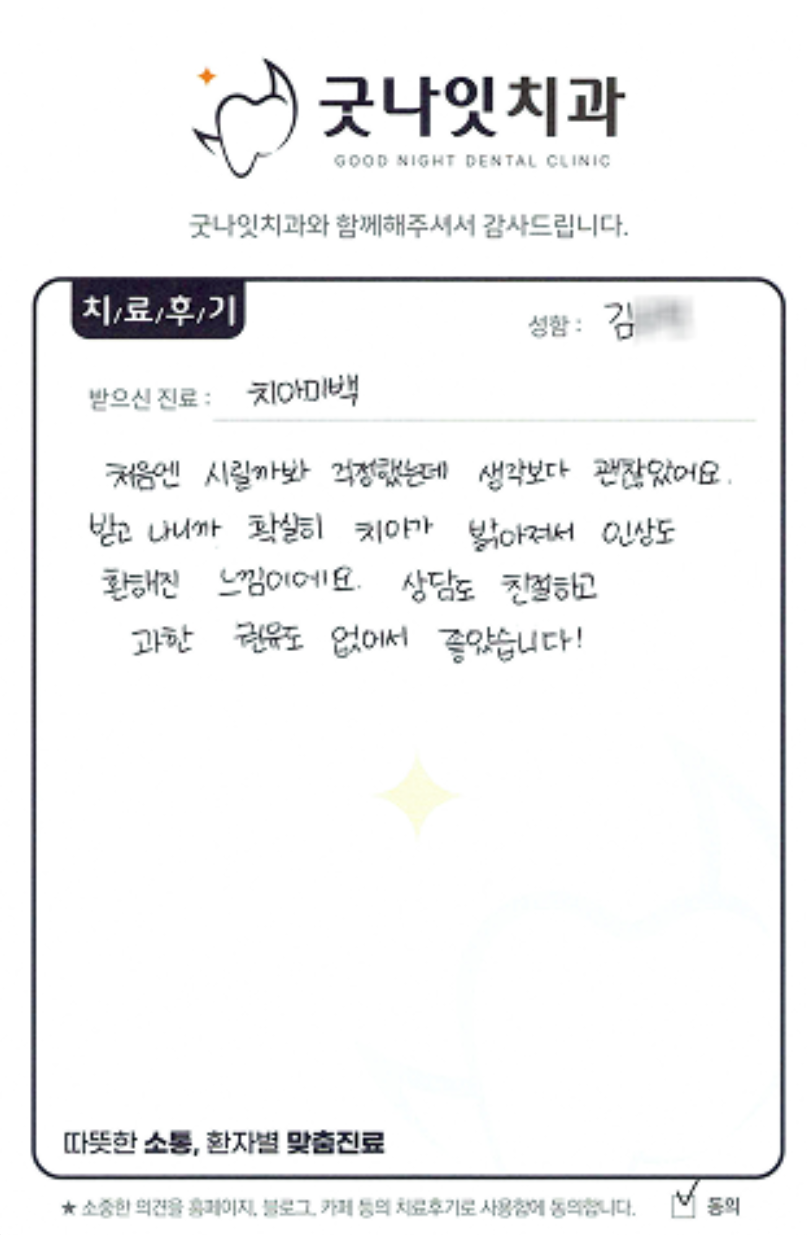 굿나잇치과
GOOD NIGHT DENTAL CLINIC
굿나잇치과와 함께해주셔서 감사드립니다.
치/료/후/기
성함 : 김
받으신 진료 : 치아미백
처음엔 시릴까봐 걱정했는데 생각보다 괜찮았어요.
받고 나니까 확실히 치아가 밝아져서 인상도
환해진 느낌이에요. 상담도 친절하고
과한 권유도 없어서 좋았습니다!
따뜻한 소통, 환자별 맞춤진료
★ 소중한 의견을 홈페이지, 블로그, 카페 등의 치료후기로 사용함에 동의합니다. 동의